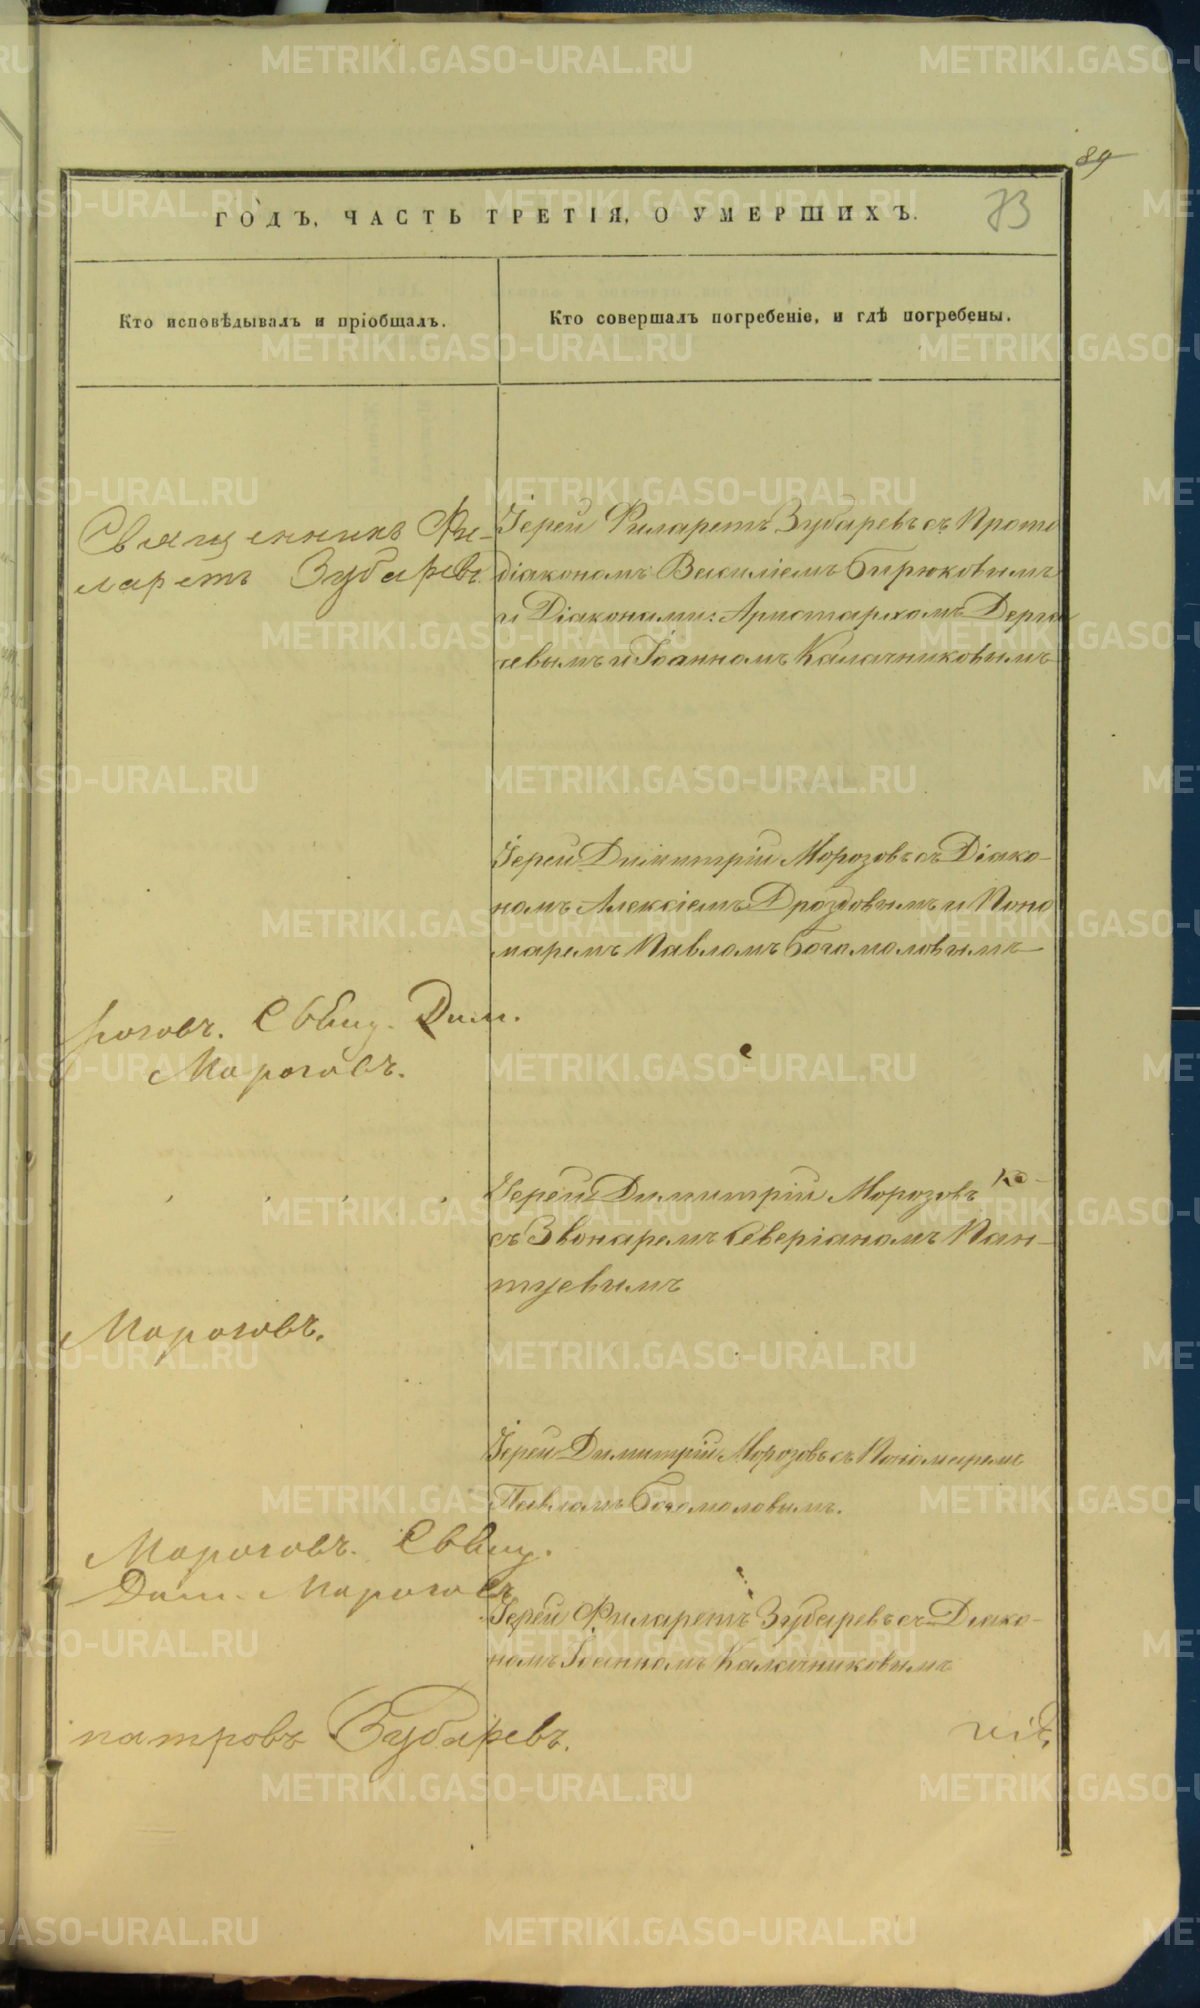 89
ГОДЪ, ЧАСТЬ ТРЕТІЯ, О УМЕРШИХЪ.
73
Кто исповѣдывалъ и пріобщалъ.
Кто совершалъ погребеніе, и гдѣ погребены.
Священникъ Фи-
ларетъ Зубаревъ
Іерей Филаретъ Зубаревъ съ Прото
діакономъ Василіемъ Бирюковымъ
и Діаконами: Аристархомъ Дерга
чевымъ и Іоанномъ Калачниковымъ
Іерей Димитрій Морозовъ съ Діако-
номъ Алексіемъ Дроздовымъ и Поно
маремъ Павломъ Богомоловымъ
розовъ. Свящ. Дим.
Морозовъ.
Іерей Димитрій Морозовъ
съ Звонаремъ Северіаномъ Пан-
туевымъ
Морозовъ.
Іерей Димитрій Морозовъ съ Пономаремъ
Павломъ Богомоловымъ.
Морозовъ. Свящ.
Дим. Морозовъ
Іерей Филаретъ Зубаревъ съ Діако-
номъ Іоанномъ Калачниковымъ
Зубаревъ.
METRIKI.GASO-URAL.RU